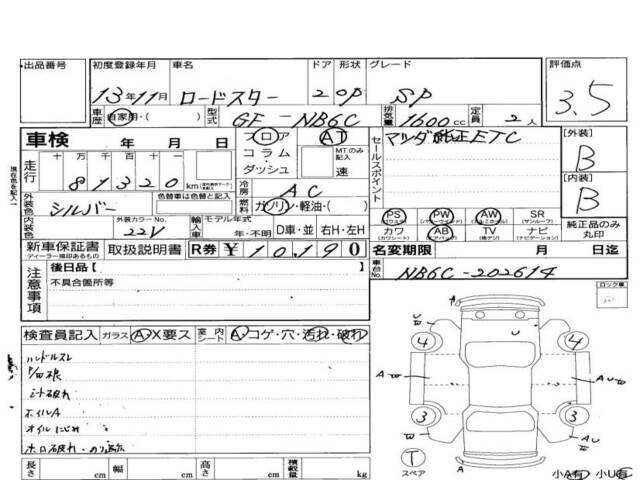 出品番号 初度登録年月 車名 ドア 形状 グレード 評価点
13年11月 ロードスター 2 OP SP 3.5
車歴 自家用・( ) 型式 GF-NB6C 排気量 1600cc 定員 2人
車検 年 月 日 フロア コラム ダッシュ AT MTのみ記入 速
セールスポイント マツダ純正ETC
[外装] B
[内装] B
走行 十万 万 千 百 十 一 81320km
冷房 AC
外装色 シルバー 色替車は色替と記入 燃料 ガソリン・軽油・( )
PS PW AW SR(サンルーフ)
カワ(カワシート) AB(エアバッグ) TV ナビ(ナビゲーション) 純正品のみ丸印
内装色 外装カラーNo. 22V 輸入車 モデル年式 年・不明 D車・並 右H・左H
新車保証書 ディーラー捺印あるもの 取扱説明書 R券 ¥10,190 名変期限 月 日迄
注意事項 後日品[ ]
不具合箇所等
車台No. NB6C-202614
ロック車
検査員記入 ガラス A・X要ス 室内シート A・コゲ・穴・汚れ・破れ
ハンドルスレ
ホイルA
オイルにじみ
長さ cm 幅 cm 高さ cm 積載量 kg
U
U
4
4
A
A
AU
3
3
U
AU
T
スペア
A
小A有 小U有